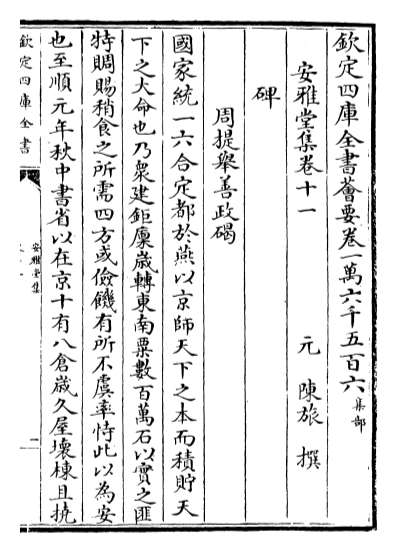 欽定四庫全書薈要卷一萬六千五百六集部
安雅堂集卷十一
元 陳旅 撰
碑
周提舉善政碣
國家統一六合定都於燕以京師天下之本而積貯天
下之大命也乃衆建鉅廩歲轉東南粟數百萬石以實之匪
特賙賜稍食之所需四方或儉饑有所不虞率恃此以為安
也至順元年秋中書省以在京十有八倉歲久屋壊棟且撓
欽定四庫全書
安雅堂集
一